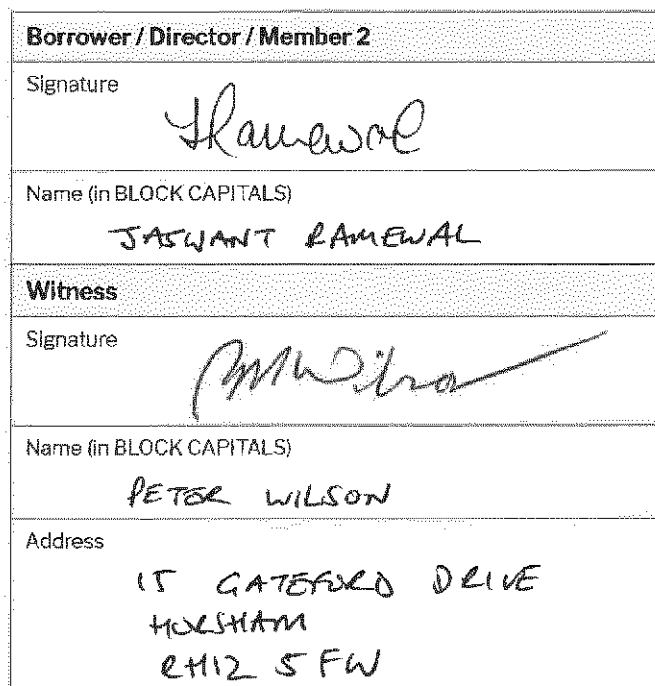 Borrower / Director / Member 2
Signature
JRamewal
Name (in BLOCK CAPITALS)
JASWANT RAMEWAL
Witness
Signature
PM Wilson
Name (in BLOCK CAPITALS)
PETER WILSON
Address
15 GATEFORD DRIVE
HORSHAM
RH12 5FW